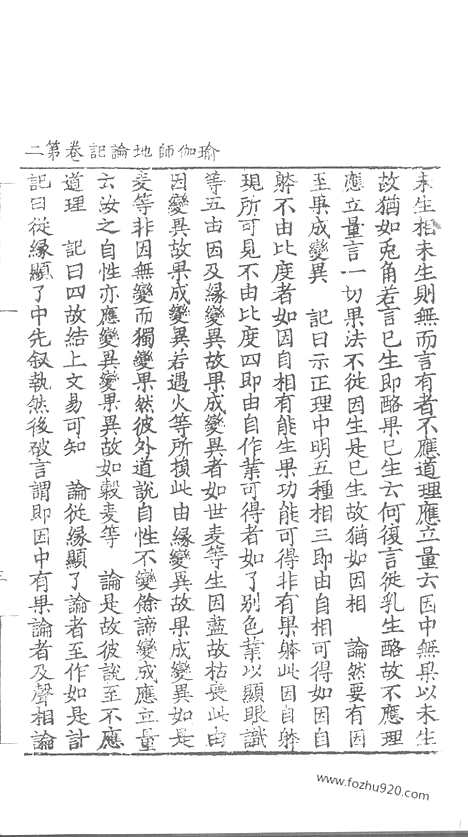 瑜伽師地論記卷第二
未生相未生則無而言有者不應道理應立量云因中無果以未生
故猶如兎角若言已生即酪果已生云何復言從乳生酪故不應理
應立量言一切果法不從因生是已生故猶如因相　論然要有因
至果成變異　記曰示正理中明五種相三即由自相可得如因自
躰不由比度者如因自相有能生果功能可得非有果躰此因自躰
現所可見不由比度四即由自作業可得者如了別色業以顯眼識
等五由因及緣變異故果成變異者如世麦等生因蓝故枯䘮此由
因變異故果成變異若遇火等所損此由緣變異故果成變異如是
麦等非因無變而獨變果然彼外道說自性不變餘諦變成應立量
云汝之自性亦應變異變果異故如穀麦等　論是故彼說至不應
道理　記曰四故結上文易可知　論從緣顯了論者至作如是計
記曰從緣顯了中先叙執然後破言謂即因中有果論者及聲相論
三
www.fozhu920.com